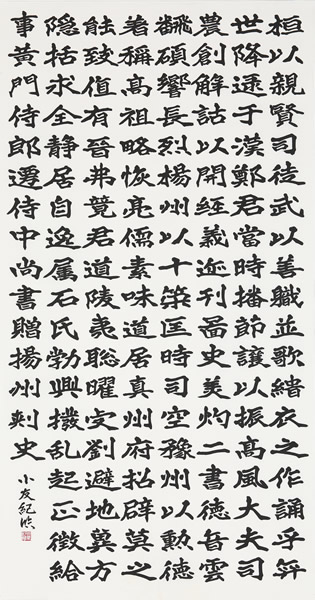 桓以親賢司徒武以善職並歌緇衣之作誦乎弈
世降逮于漢鄭君當時播節讓以振高風大夫司
農創解詁以開經義迹刊啚史美灼二書德音雲
翻碩響長烈楊州以十策匡時司空豫州以勳德
著稱高祖略恢亮儒素味道居真州府招辟莫之
能致值有晉弗競君道陵夷聡曜虔劉避地冀方
隐括求全静居自逸属石氏勃興撥乱起正徵給
事黃門侍郎遷侍中尚書贈揚州刺史
小友紀